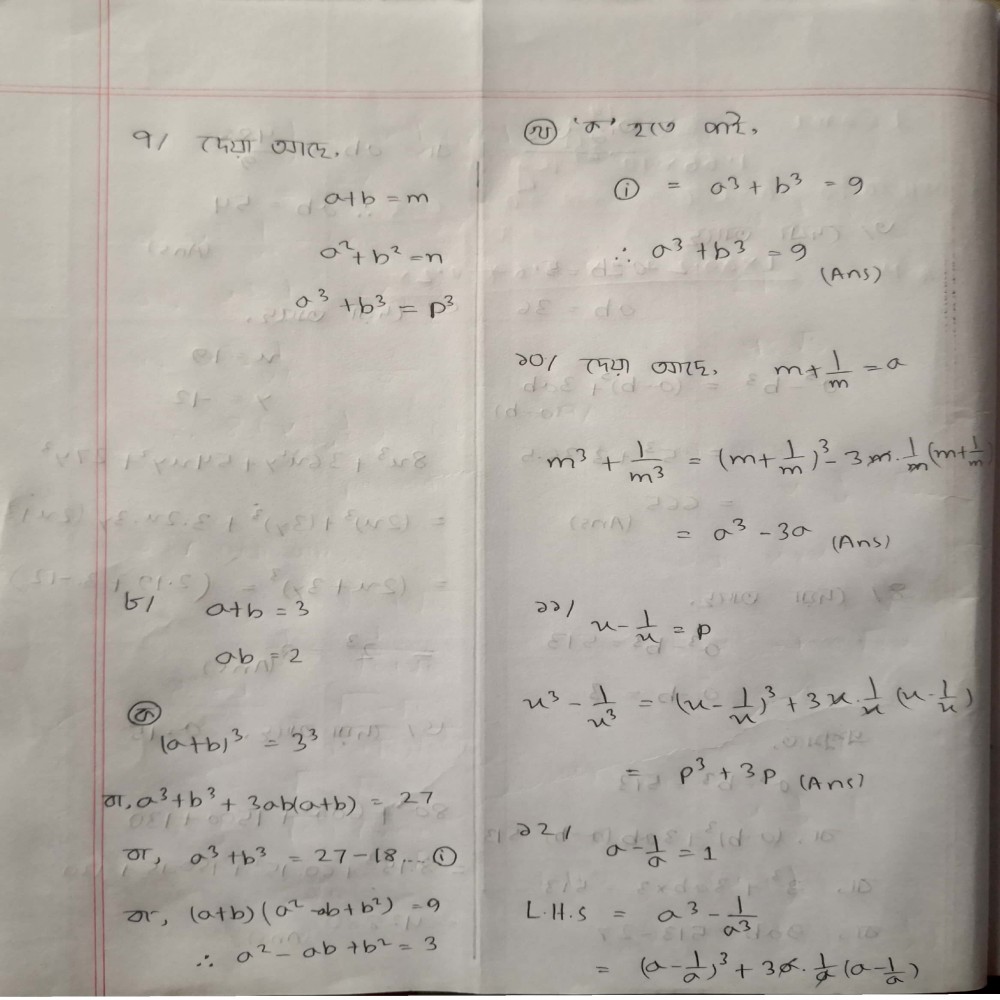 ৭/ দেয়া আছে,
a+b = m
a²+b² = n
a³+b³ = p³
৮/ a+b = 3
ab = 2
ক
(a+b)³ = 3³
বা, a³+b³+3ab(a+b) = 27
বা, a³+b³ = 27-18...(i)
বা, (a+b)(a²-ab+b²) = 9
∴ a²-ab+b² = 3
খ 'ক' হতে পাই,
(i) = a³+b³ = 9
∴ a³+b³ = 9
(Ans)
১০/ দেয়া আছে, m+1/m = a
m³+1/m³ = (m+1/m)³-3m.1/m(m+1/m
= a³-3a (Ans)
১১/ x-1/x = p
x³-1/x³ = (x-1/x)³+3x.1/x(x-1/x)
= p³+3p (Ans)
১২/ a-1/a = 1
L.H.S = a³-1/a³
= (a-1/a)³+3a.1/a(a-1/a)